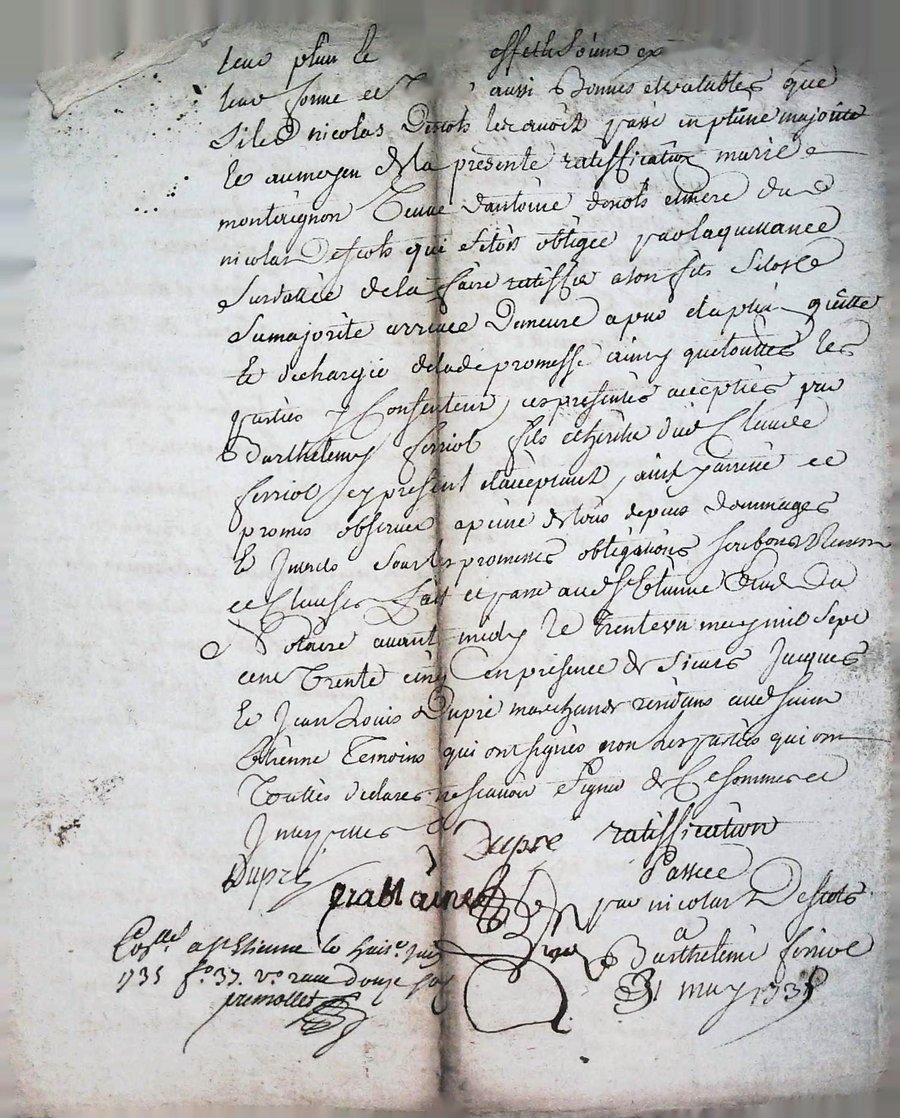 leur plain et effect Soient ex
leur forme et aussi Bonnes et valables que
Siled nicolas Descols les avoit passé en pleine majorité
Et aumoyen de la presente ratiffication marie
monteirgnon veuve dantoine descols et mere dud
nicolas Descols qui sétoit obligée par laquittance
Susdattée de la faire ratiffier a son fils Sitost
Samajorité arrivée Demeure apur et aplein quitte
Et dechargée delade promesse ainsy que touttes les
parties y Consentent, ces presentes acceptées par
Barthelemy ferriol fils et heritier dud Claude
ferriol cy present et acceptant, ainsy arreté et
promis observer apeine de tous depens dommages
Et Interets Sous les promesses obligations
et Clauses fait et passé aud st Etienne Etude du
Notaire avant midy le trente un may mil sept
cent Trente cinq En présence de Sieurs Jacques
Et Jean Louis Dupré marchands residans aud saint
Etienne Temoins qui ont signés non les parties qui ont
Touttes déclarés ne scavoir Signer de Ce Sommes et
Interpellés
Dupré ratiffication
Dupré
Passée
par nicolas Descols
a
Barthelemi ferriol
31 may 1735
Collé a st Etienne le huit
1735 fo. 37. vo. recu douze sols